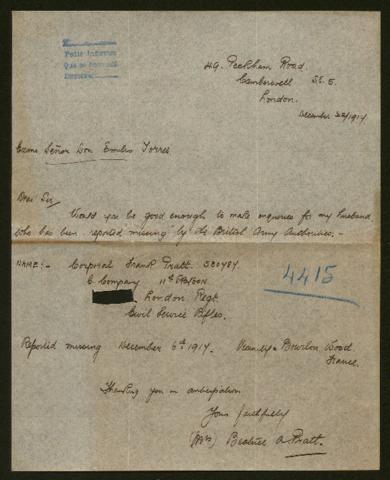 Petit Informe
49. Peckham Road.
Camberwell S.E. 5.
London.
December 1917
Exmo Señor Don Emilio Torres
Dear Sir/
Would you be good enough to make inquiries for my husband
who has been "reported missing" by the British Army Authorities.-
NAME:- Corporal Frank Pratt.
C Company 11th Platoon
London Regt.
Civil Service Rifles.
4415
Reported missing December 6th 1917. Vicinity - Bourlon Wood
France.
Thanking you in anticipation
Yours faithfully
(Mrs) Beatrice A Pratt.